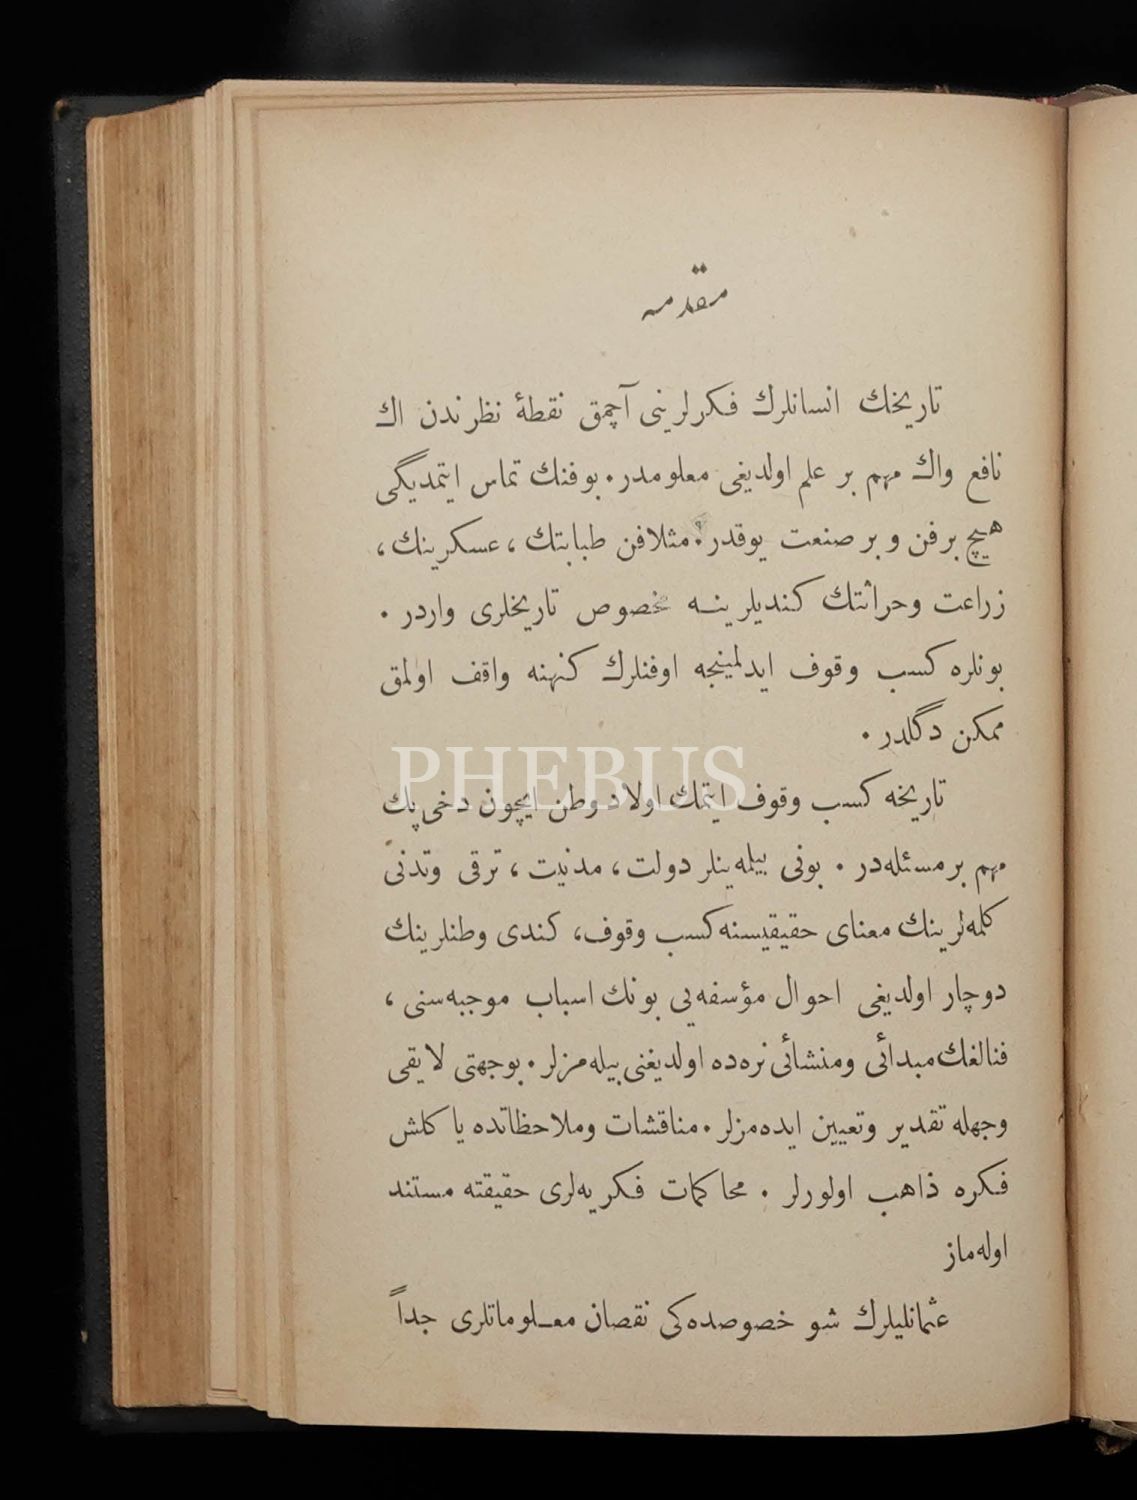 مقدمه
تاريخك انسانلرك فكرلرينى آچمق نقطۀ نظرندن اك
نافع واك مهم بر علم اولديغى معلومدر. بوفنك تماس ايتمديگى
هيچ برفن و بر صنعت يوقدر. مثلافن طبابتك، عسكرينك،
زراعت وحراثتك كنديلرينه مخصوص تاريخلرى واردر.
بونلره كسب وقوف ايدلمينجه اوفنلرك كنهنه واقف اولمق
ممكن دگلدر.
PHEBUS
تاريخه كسب وقوف ايتمك اولاد وطن ايچون دخى پك
مهم برمسئله‌در. بونى بيلمه‌ينلر دولت، مدنيت، ترقى وتدنى
كلمه‌لرينك معناى حقيقيسنه كسب وقوف، كندى وطنلرينك
دوچار اولديغى احوال مؤسفه‌يى بونك اسباب موجبه‌سنى،
فنالغك مبدائى ومنشائى نره‌ده اولديغنى بيله‌مزلر. بوجهتى لايقى
وجهله تقدير وتعيين ايده‌مزلر. مناقشات وملاحظاتده ياكلش
فكره ذاهب اولورلر. محاكمات فكريه‌لرى حقيقته مستند
اوله‌ماز
عثمانليلرك شو خصوصده‌كى نقصان معلوماتلرى جداً